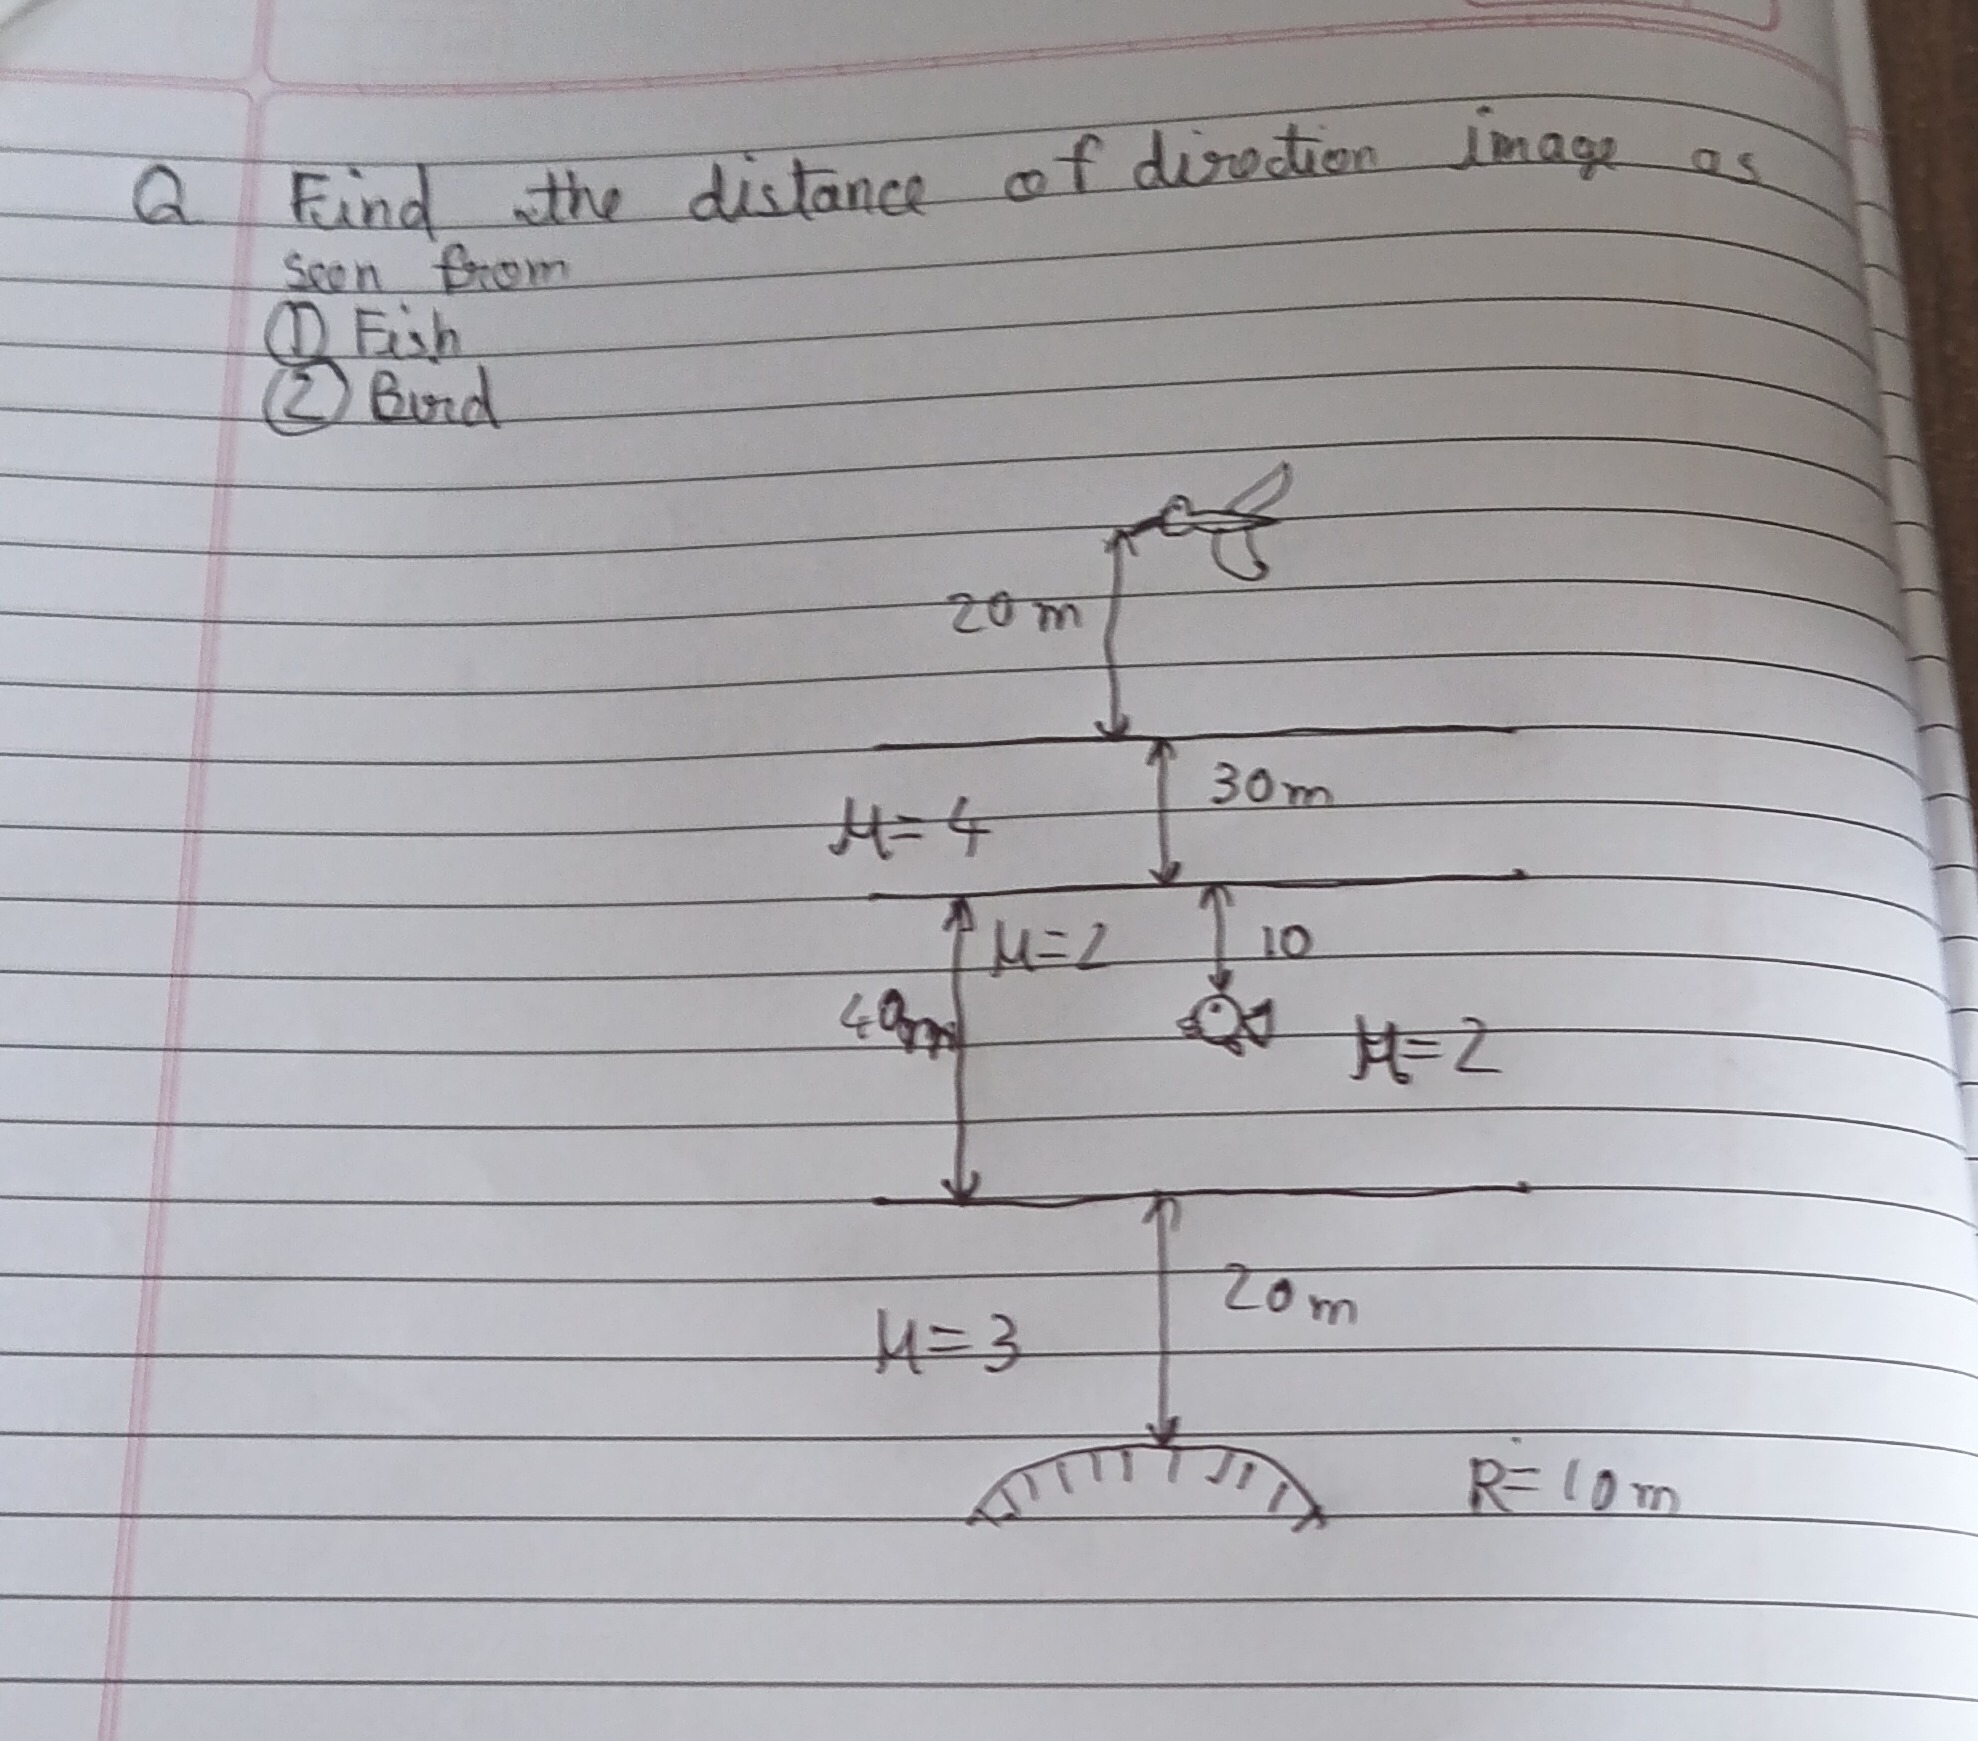 Q Find the distance of direction image as
seen from
① Fish
② Bird
20 m
30 m
μ = 4
μ = 2
10
40m
μ = 2
20 m
μ = 3
R = 10 m